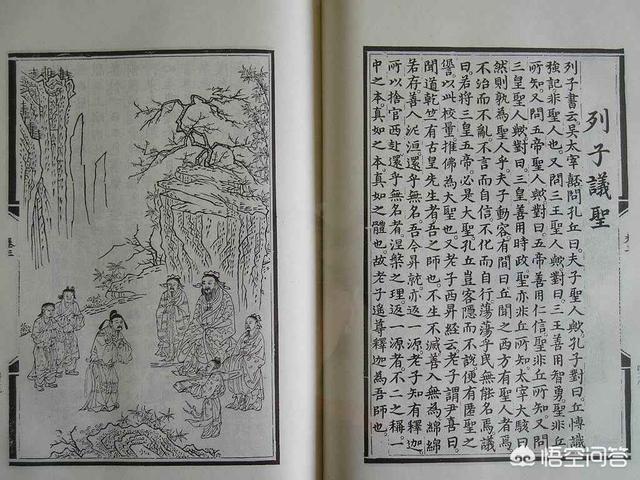 列子議聖
列子書云吳太宰嚭問孔丘曰夫子聖人歟孔子對曰丘博識
強記非聖人也又問三王聖人歟對曰三王善用智勇聖非丘
所知又問五帝聖人歟對曰五帝善用仁信聖非丘所知又問
三皇聖人歟對曰三皇善用時政聖亦非丘所知太宰大駭曰
然則孰為聖人乎夫子動容有間曰丘聞之西方有聖者焉
不治而不亂不言而自信不化而自行蕩蕩乎民無能名焉議
曰若將三皇五帝必是大聖孔丘豈容隱而不說便有匿聖之
譽以此校量推佛為大聖也老子西昇經云老子謂尹喜曰
聞道乾竺有古皇先生者吾之師也不生不滅善入無為綿綿
若存善入泥洹還乎無名吾今昇就亦返一源老子知有釋迦
所以捨官西赴還乎無名者涅槃之理返一源者不二之稱
中之本真如之體也故老子遙尊釋迦為吾師也
悟空问答